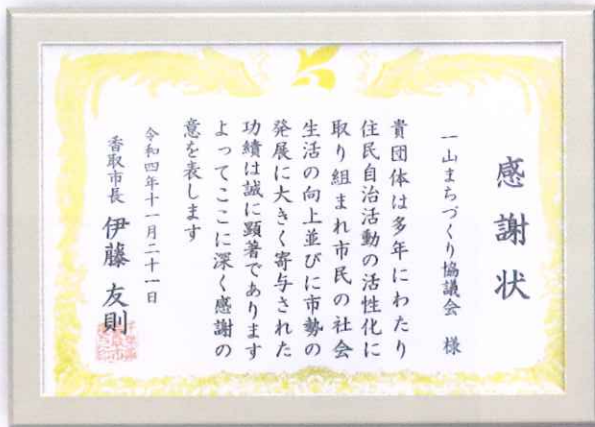 感謝状
一山まちづくり協議会 様
貴団体は多年にわたり
住民自治活動の活性化に
取り組まれ市民の社会
生活の向上並びに市勢の
発展に大きく寄与された
功績は誠に顕著であります
よってここに深く感謝の
意を表します
令和四年十一月二十一日
香取市長 伊藤友則